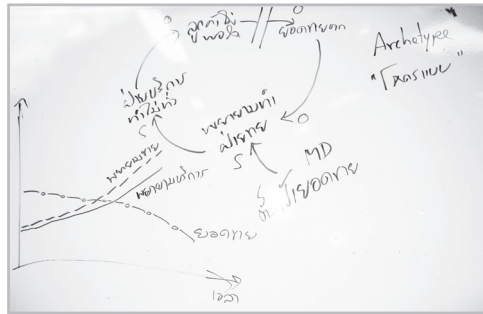 ลูกค้าไม่
พอใจ
O
ยอดขายตก
Archetype
"โคตรแบบ"
ฝ่ายบริการ
ทำไม่ทัน
S
พยายามทำ
ฝ่ายขาย
S
O
MD
ยอดขาย
พยายามขาย
พยายามบริการ
ยอดขาย
เวลา